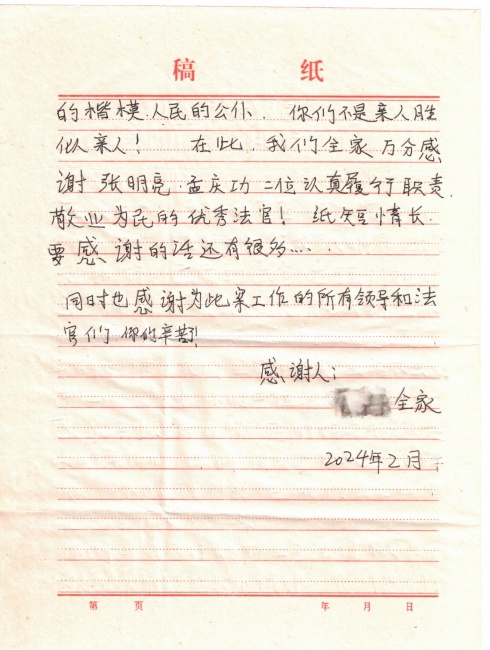 稿 纸
的楷模.人民的公仆. 你们不是亲人胜
似亲人! 在此.我们全家万分感
谢张明亮.孟庆功二位认真履行职责.
敬业为民的优秀法官! 纸短情长.
要感谢的话还有很多.....
同时也感谢为此案工作的所有领导和法
官们 你们辛苦!
感谢人:
全家
2024年2月
第 页 年 月 日